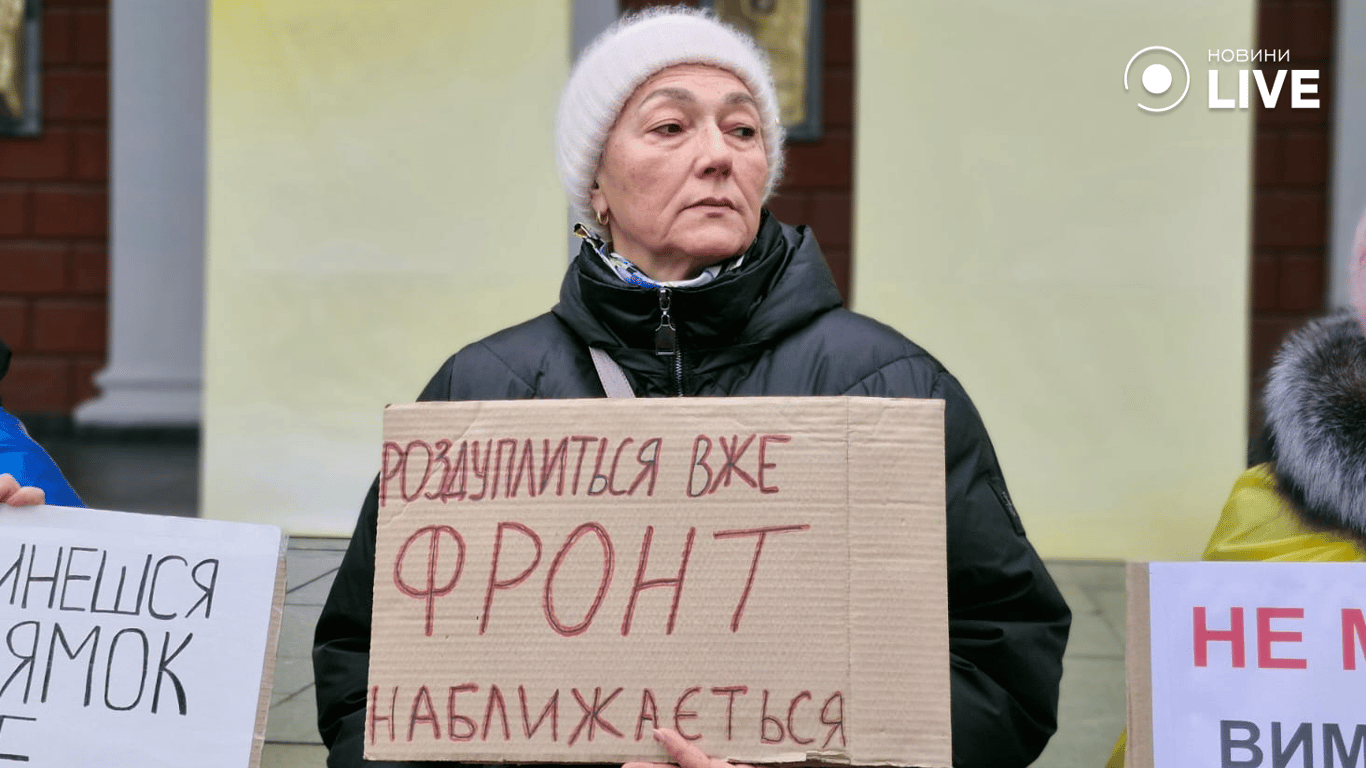 НОВИНИ
LIVE
РОЗДУПЛИТЬСЯ ВЖЕ
ФРОНТ
НАБЛИЖАЄТЬСЯ
ИНЕШСЯ
ЯМОК
Е
НЕ М
ВИМ